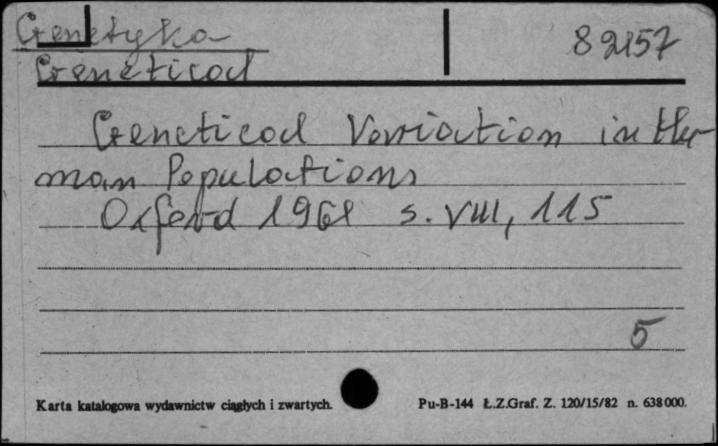 Genetyka
82157
Genetical
Genetical Variation in Hu-
man Populations
Oxford 1961 s. VIII, 115
5
Karta katalogowa wydawnictw ciągłych i zwartych.
Pu-B-144 Ł.Z.Graf. Z. 120/15/82 n. 638000.